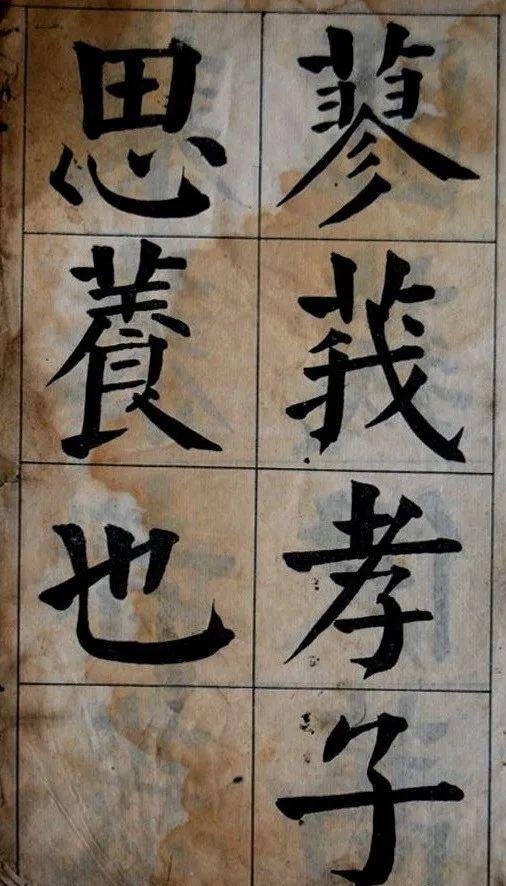 蓼莪孝子
思養也